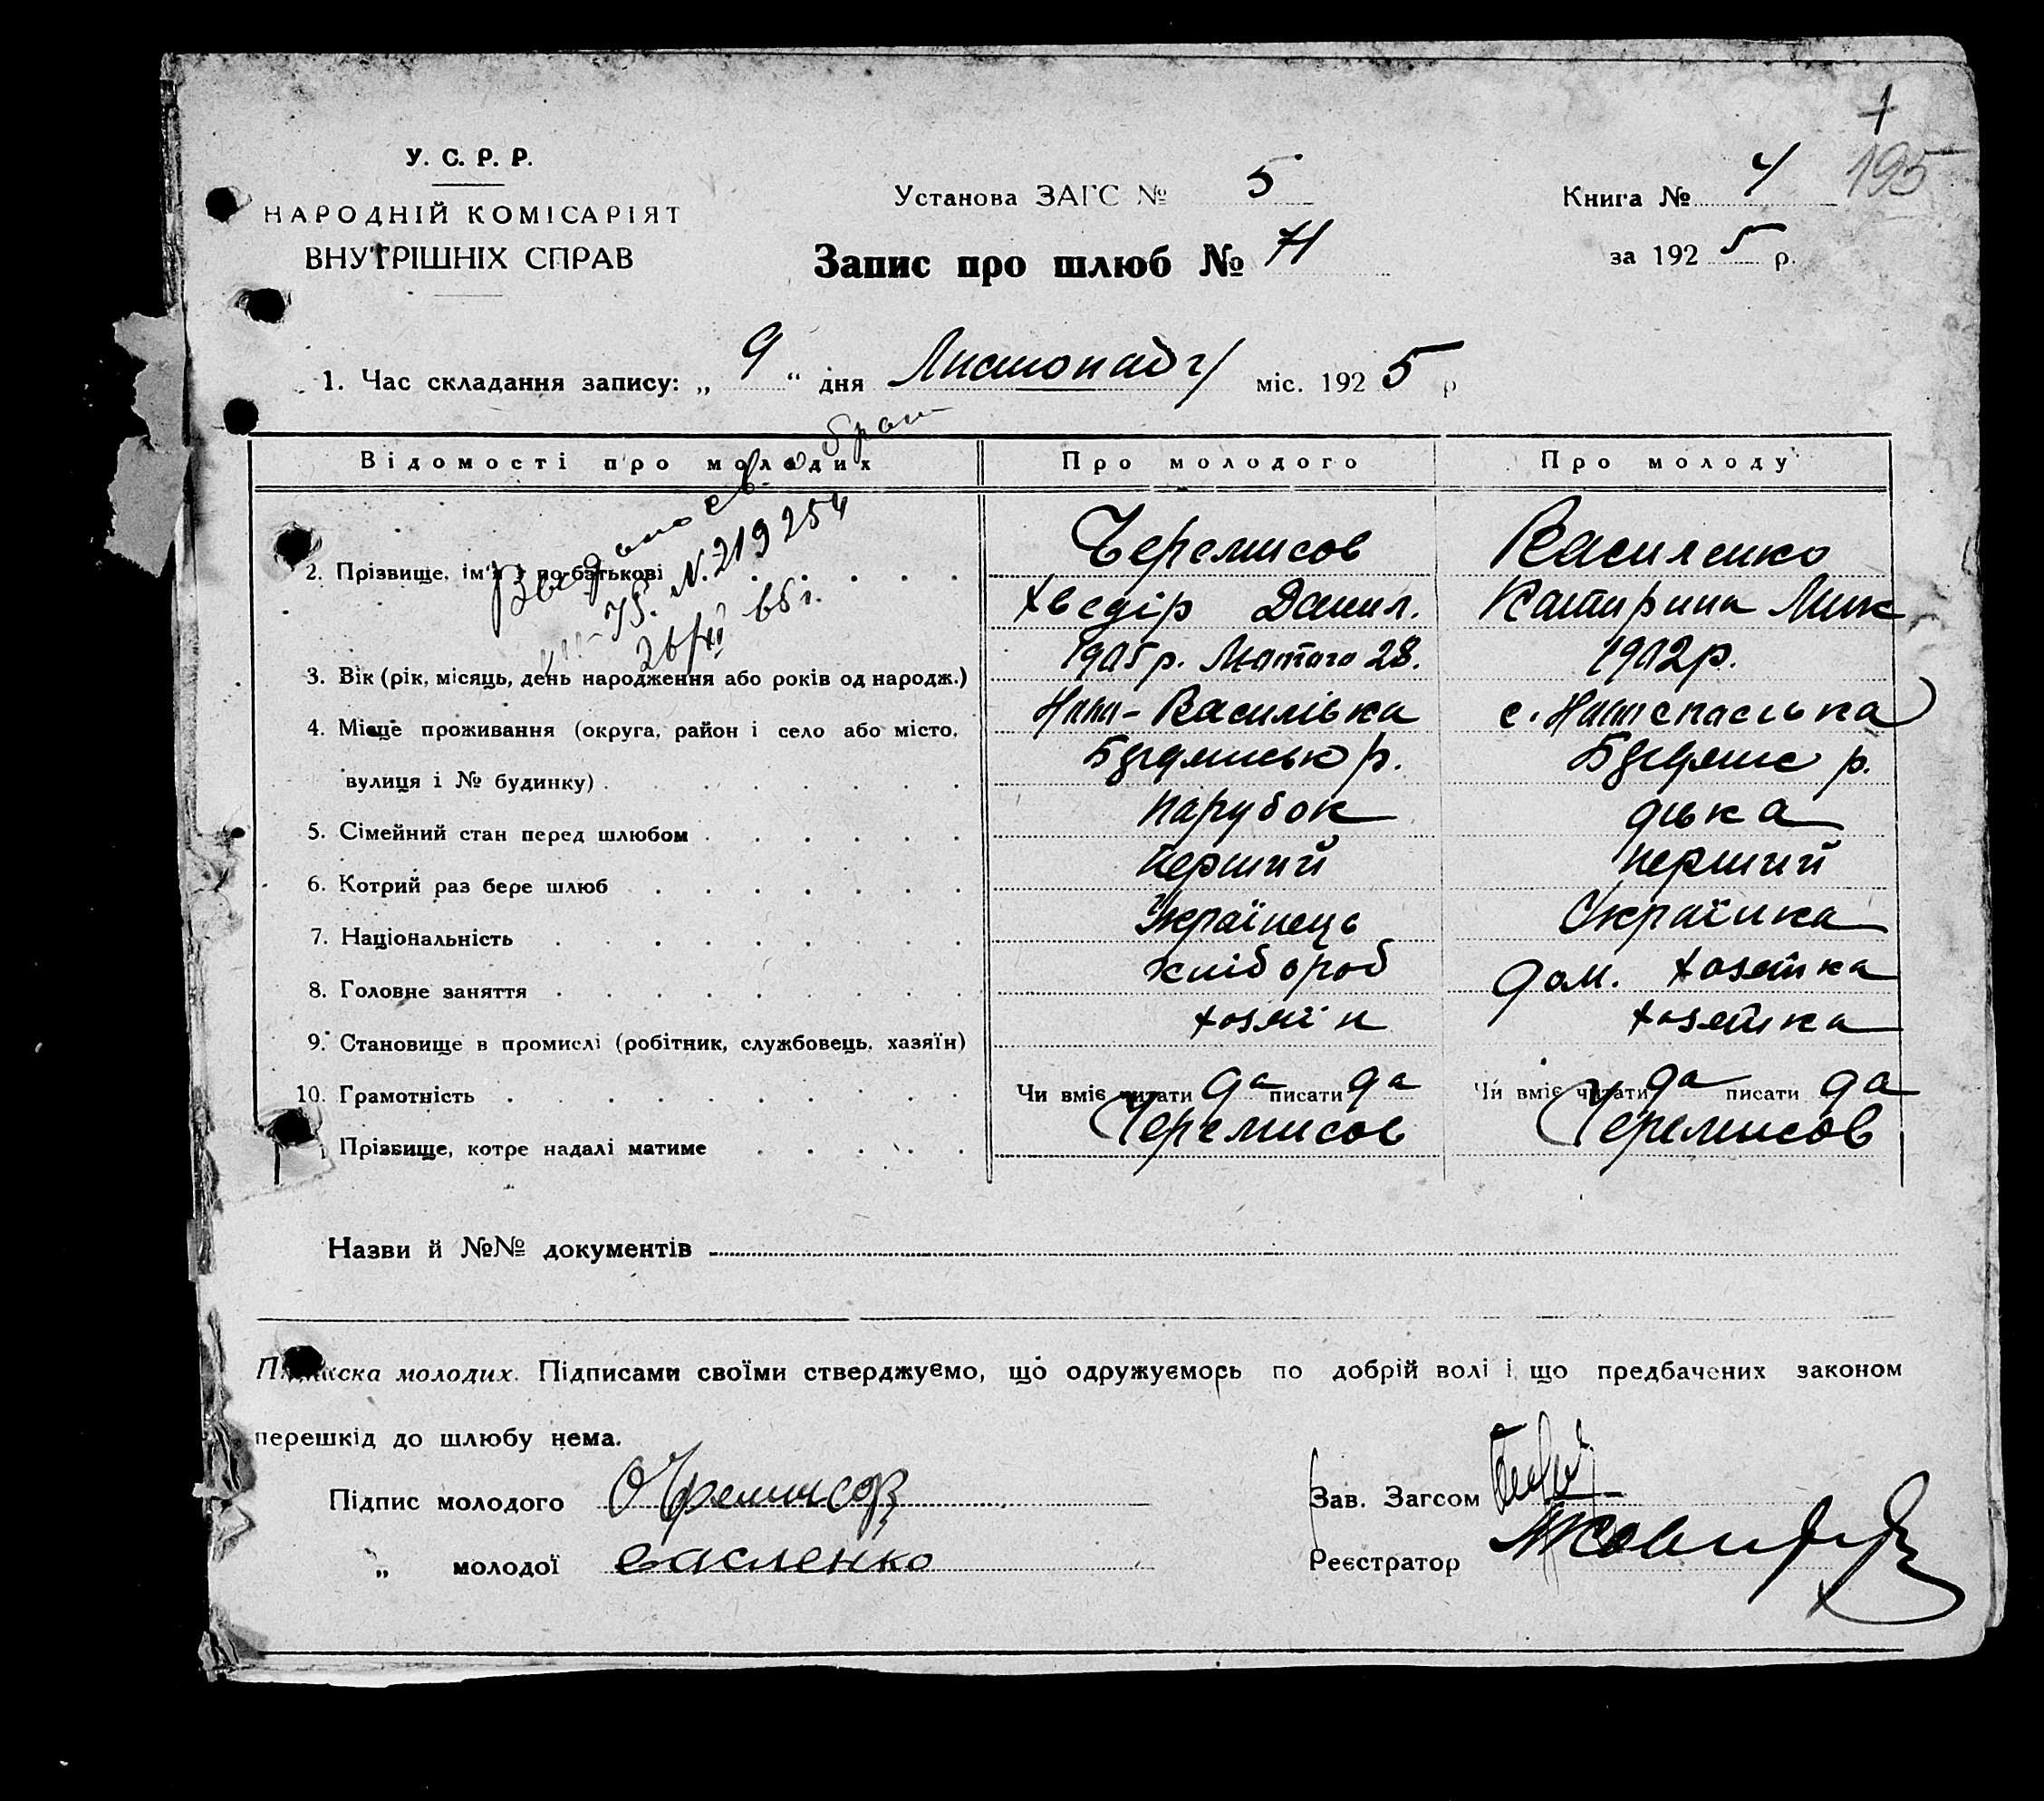 195
У. С. Р. Р.
НАРОДНІЙ КОМІСАРІЯТ
ВНУТРІШНІХ СПРАВ
Установа ЗАГС № 5
Книга № 4
Запис про шлюб № 71
за 1925 р.
1. Час складання запису: „ 9 “ дня Листопаду міс. 1925 р
брак
Відомості про молодих
Про молодого
Про молоду
Выдано св.
N. 219254
26/XI 65 г.
2. Прізвище, ім'я і по-батькові
Черемисов
Василенко
Хведір Данил.
Катирина Мик
3. Вік (рік, місяць, день народження або років од народж.)
1905 р. Лютого 28.
1902 р.
4. Місце проживання (округа, район і село або місто,
Ново-Василівка
с. Новоспаська
вулиця і № будинку)
парубок
дівка
5. Сімейний стан перед шлюбом
6. Котрий раз бере шлюб
перший
перший
7. Національність
Українець
Українка
8. Головне заняття
хлібороб
дом. хозяйка
9. Становище в промислі (робітник, службовець, хазяїн)
хозяїн
хозяйка
10. Грамотність
Чи вміє читати да писати да
Чи вміє читати да писати да
Прізвище, котре надалі матиме
Черемисов
Черемисов
Назви й №№ документів
Підписка молодих. Підписами своїми стверджуємо, що одружуємось по добрій волі і що предбачених законом
перешкід до шлюбу нема.
Підпис молодого
Зав. Загсом
„ молодої василенко
Реєстратор